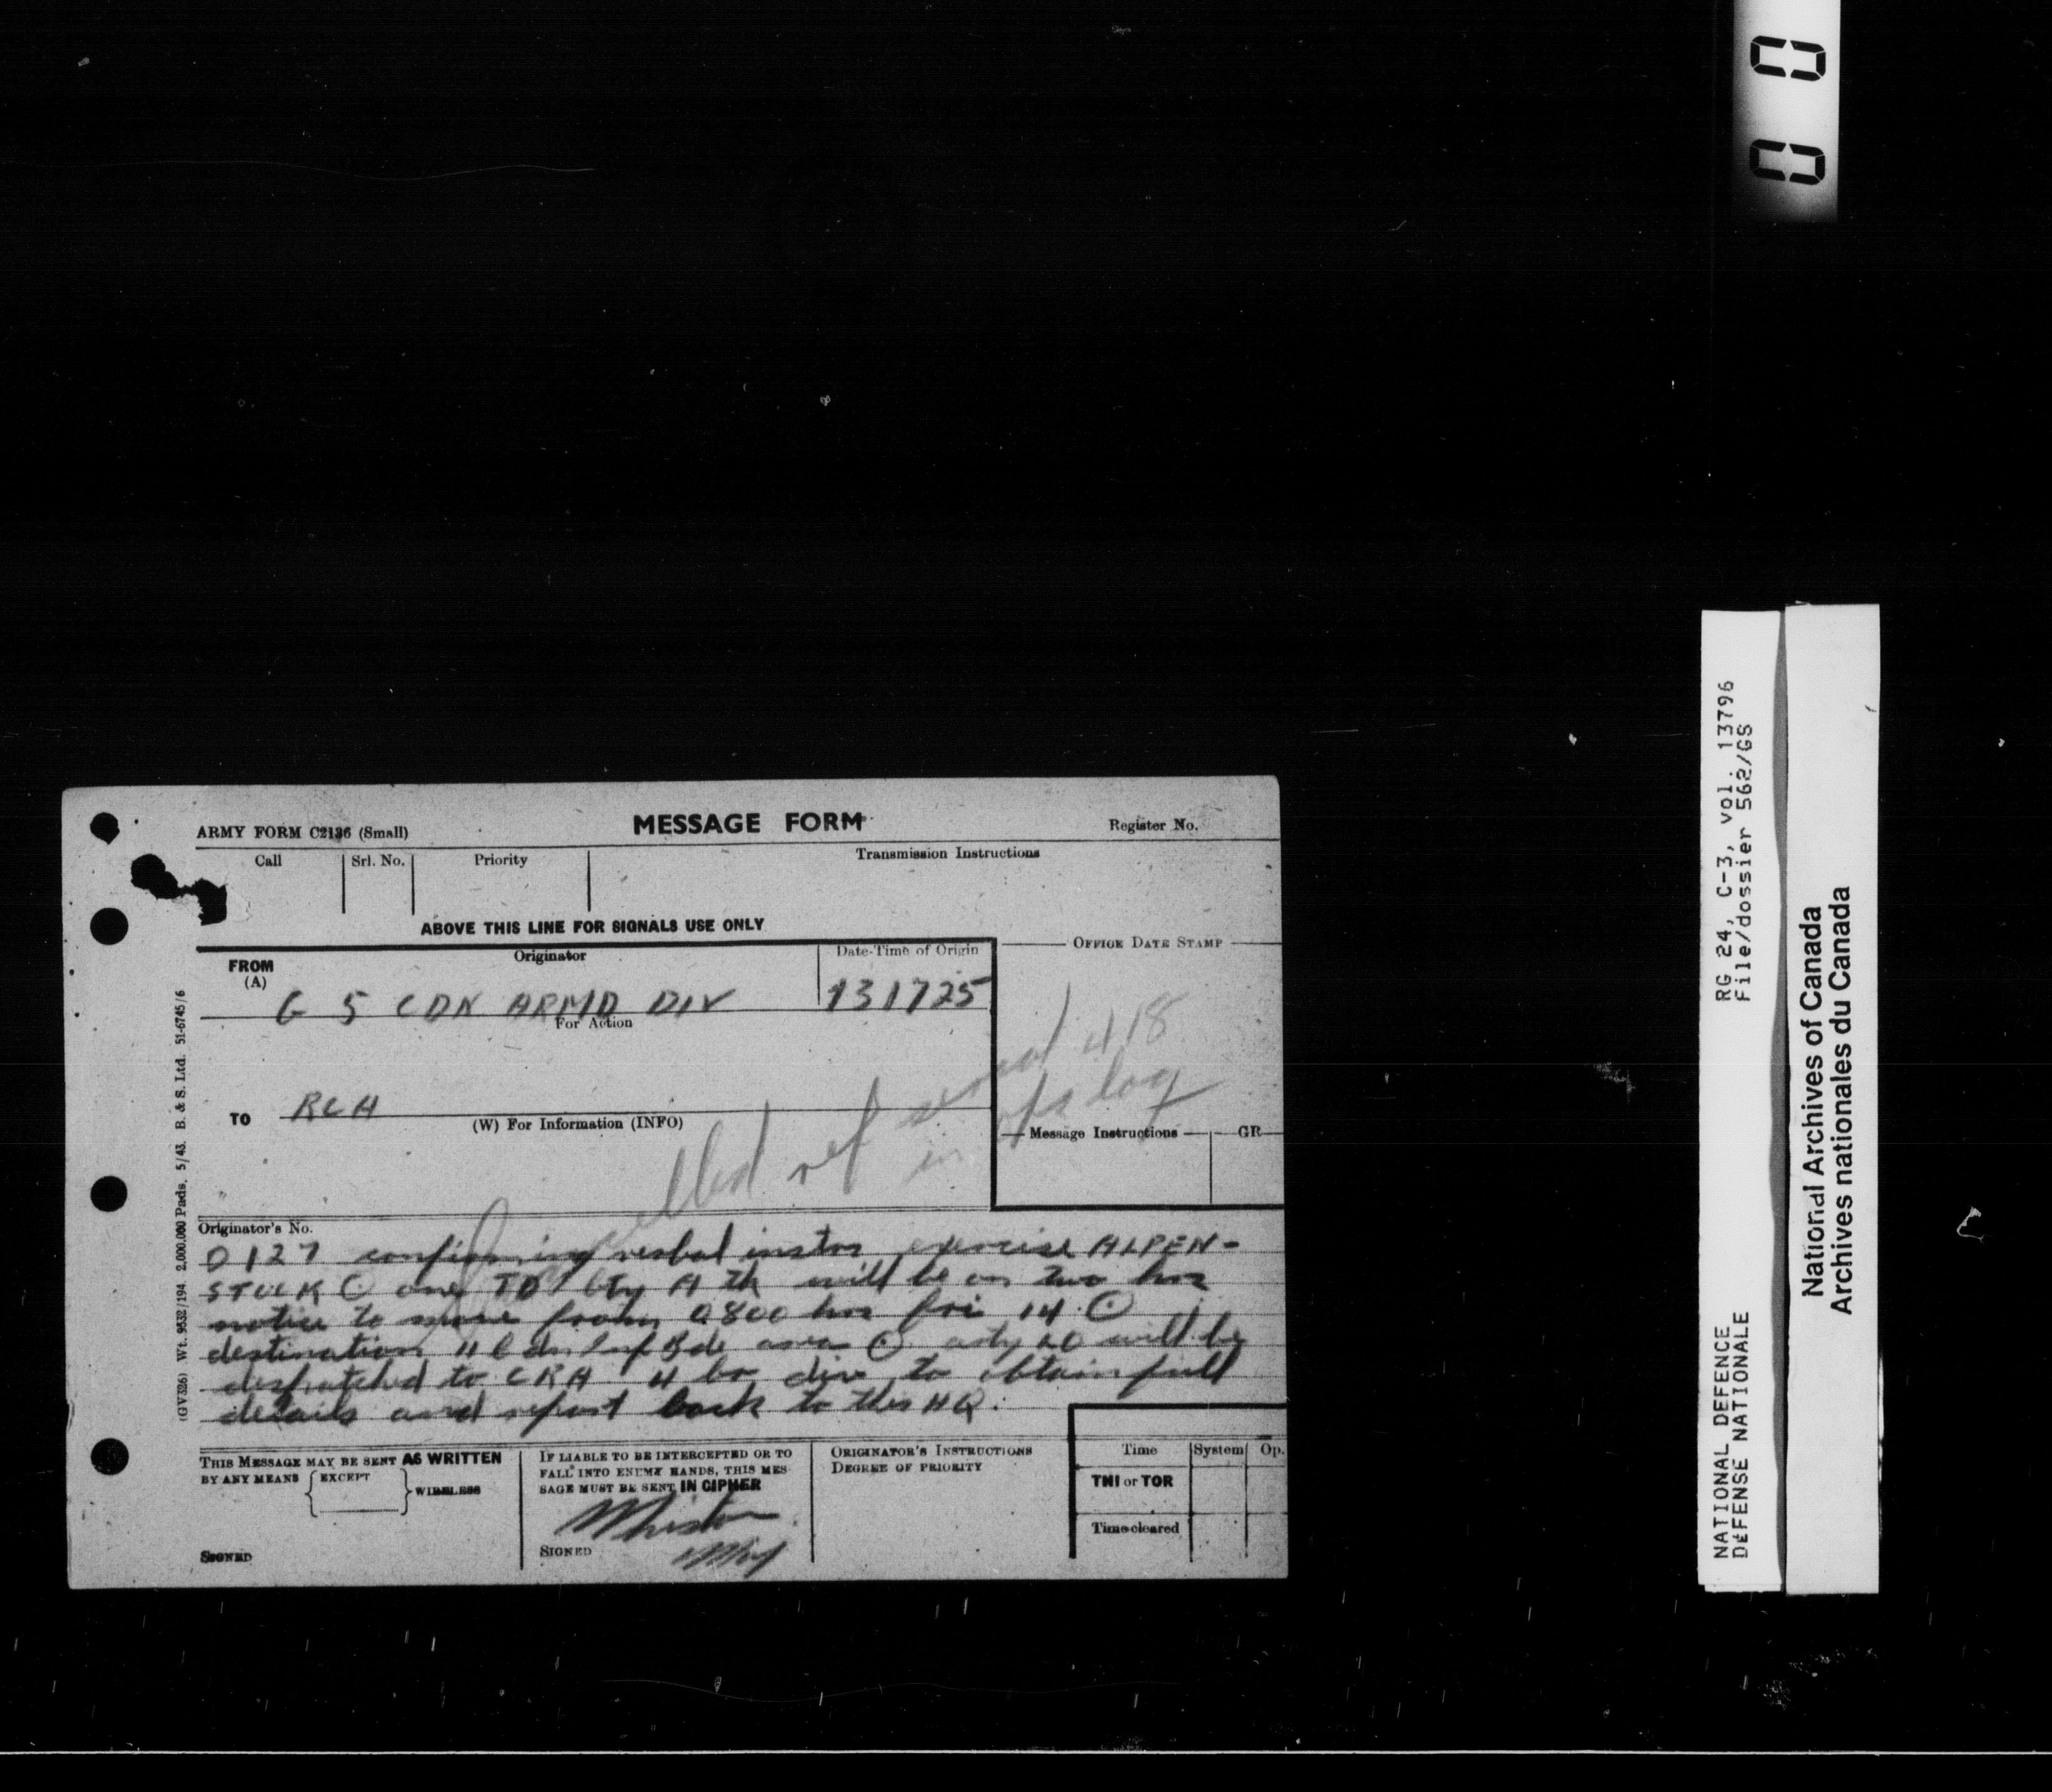 ARMY FORM C2136 (Small)
MESSAGE FORM
Register No.
Call
Srl. No.
Priority
Transmission Instructions
ABOVE THIS LINE FOR SIGNALS USE ONLY
FROM
(A)
Originator
G 5 CDN ARMD DIV
Date-Time of Origin
131725
OFFICE DATE STAMP
For Action
TO
RCA
(W) For Information (INFO)
Message Instructions
GR
Cancelled ref serial 418
in ops log
Originator's No.
O 127 confirming verbal instrs exercise ALPEN-
STOCK ⊙ one TD bty A tk will be on two hrs
notice to move from 0800 hrs fri 14 ⊙
destination 11 Cdn Inf Bde area ⊙ arty LO will be
despatched to CRA 4 Br div to obtain full
details and report back to this HQ.
THIS MESSAGE MAY BE SENT AS WRITTEN
BY ANY MEANS EXCEPT WIRELESS
SIGNED
IF LIABLE TO BE INTERCEPTED OR TO
FALL INTO ENEMY HANDS, THIS MES-
SAGE MUST BE SENT IN CIPHER
SIGNED
ORIGINATOR'S INSTRUCTIONS
DEGREE OF PRIORITY
Time
System
Op.
THI or TOR
Time cleared
(GV326) Wt. 9532/194 2,000,000 Pads. 5/43. B. & S. Ltd. 51-6745/6
0 0
RG 24, C-3, vol. 13796
File/dossier 562/GS
NATIONAL DEFENCE
DÉFENSE NATIONALE
National Archives of Canada
Archives nationales du Canada